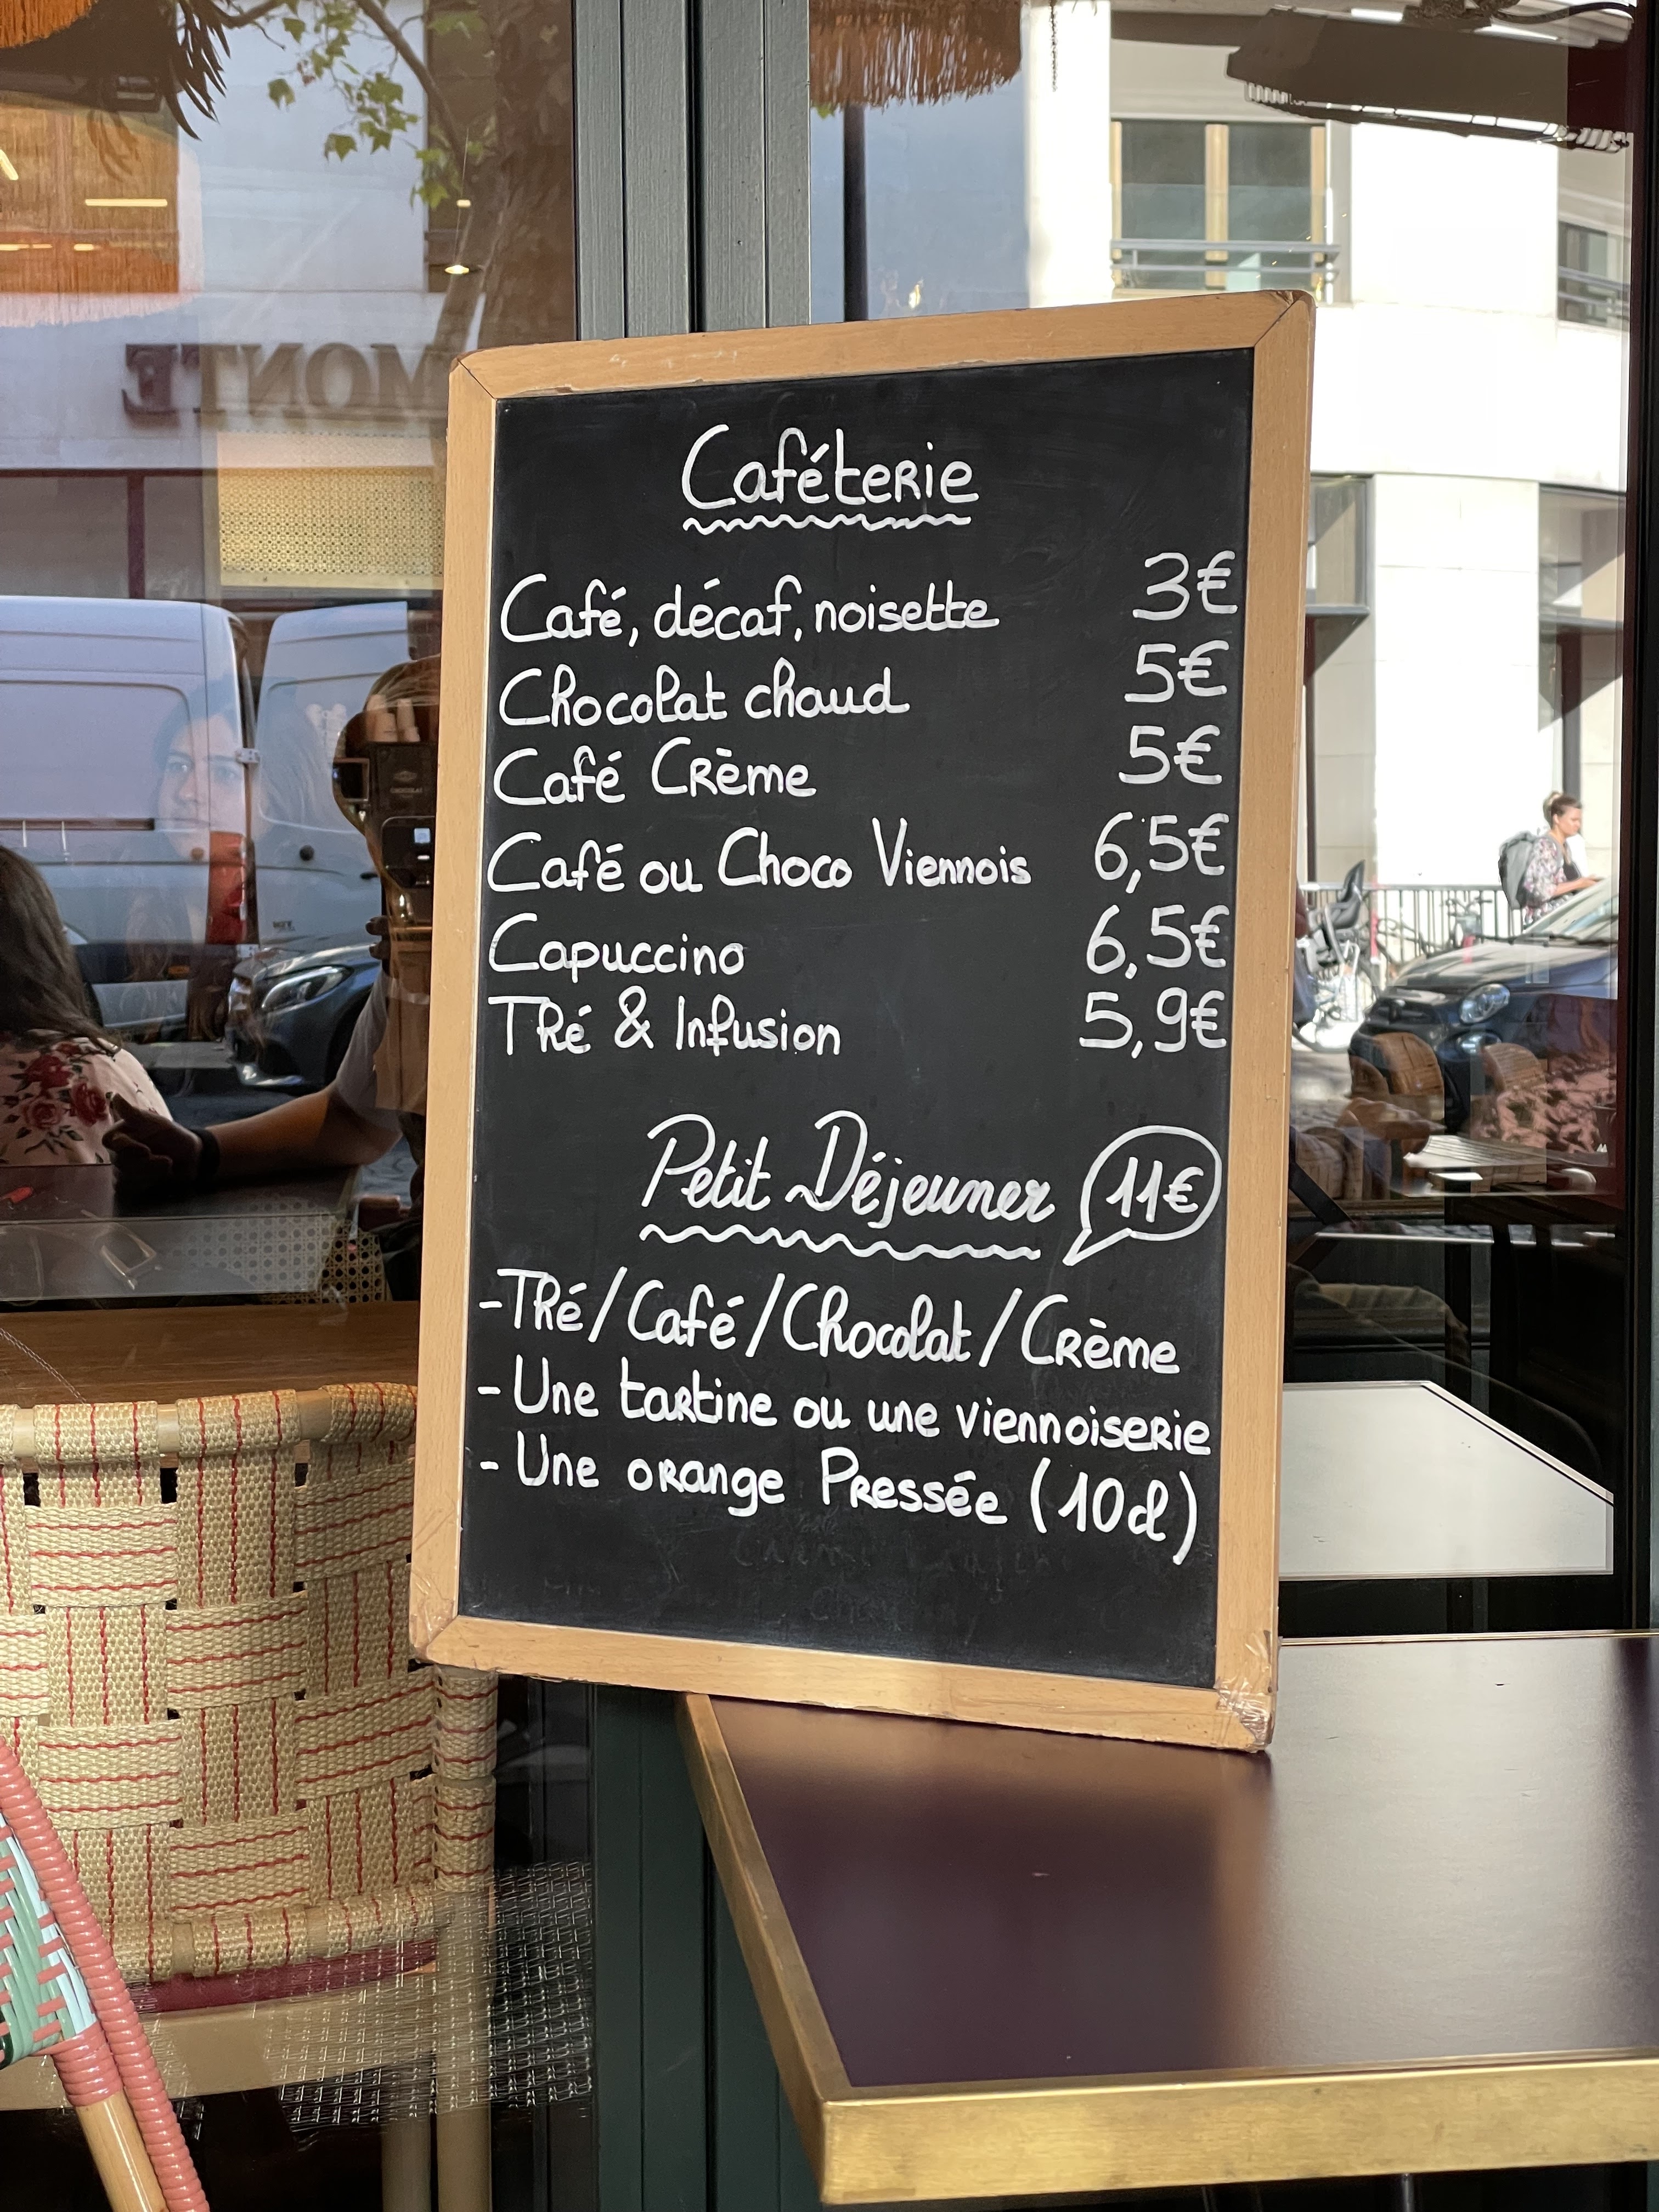 MONTE
Caféterie
Café, décaf, noisette 3€
Chocolat chaud 5€
Café Crème 5€
Café ou Choco Viennois 6,5€
Capuccino 6,5€
Thé & Infusion 5,9€
Petit Déjeuner 11€
-Thé/Café/Chocolat/Crème
- Une tartine ou une viennoiserie
- Une orange Pressée (10cl)